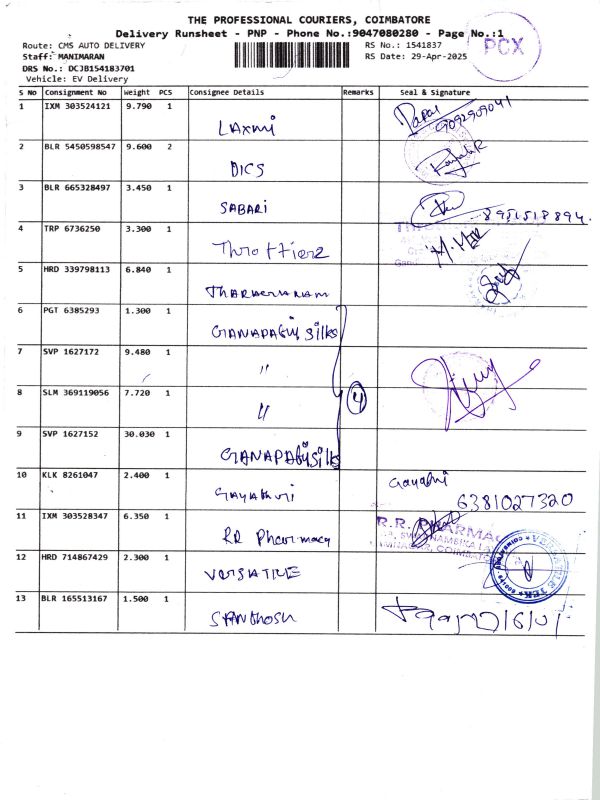 THE PROFESSIONAL COURIERS, COIMBATORE
Delivery Runsheet - PNP - Phone No.:9047080280 - Page No.:1
Route: CMS AUTO DELIVERY RS No.: 1541837 PCX
Staff: MANIMARAN RS Date: 29-Apr-2025
DRS No.: DCJB154183701
Vehicle: EV Delivery
S No Consignment No Weight PCS Consignee Details Remarks Seal & Signature
1 IXM 303524121 9.790 1 LAXMI 9092909041
2 BLR 5450598547 9.600 2 DICS
3 BLR 665328497 3.450 1 SABARI 8951518894.
4 TRP 6736250 3.300 1
5 HRD 339798113 6.840 1
6 PGT 6385293 1.300 1 GANAPAthy silks
7 SVP 1627172 9.480 1 "
8 SLM 369119056 7.720 1 " 4
9 SVP 1627152 30.030 1 GANAPAthy silks
10 KLK 8261047 2.400 1 GAYAthri Gayathri
6381027320
11 IXM 303528347 6.350 1 RR Pharmacy R.R. PHARMACY
12 HRD 714867429 2.300 1 VERSATILE
13 BLR 165513167 1.500 1 SANthosh